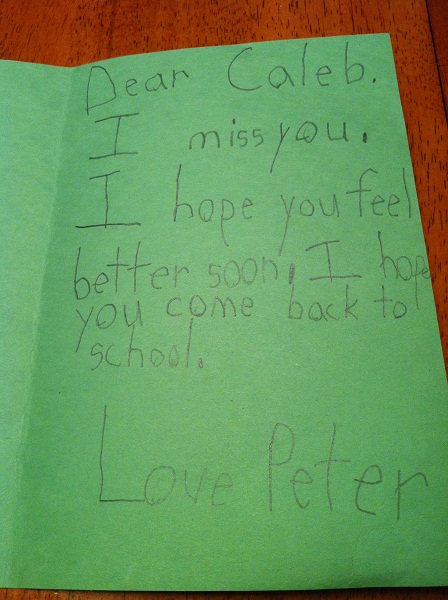 Dear Caleb.
I miss you.
I hope you feel
better soon, I hope
you come back to
school.
Love Peter